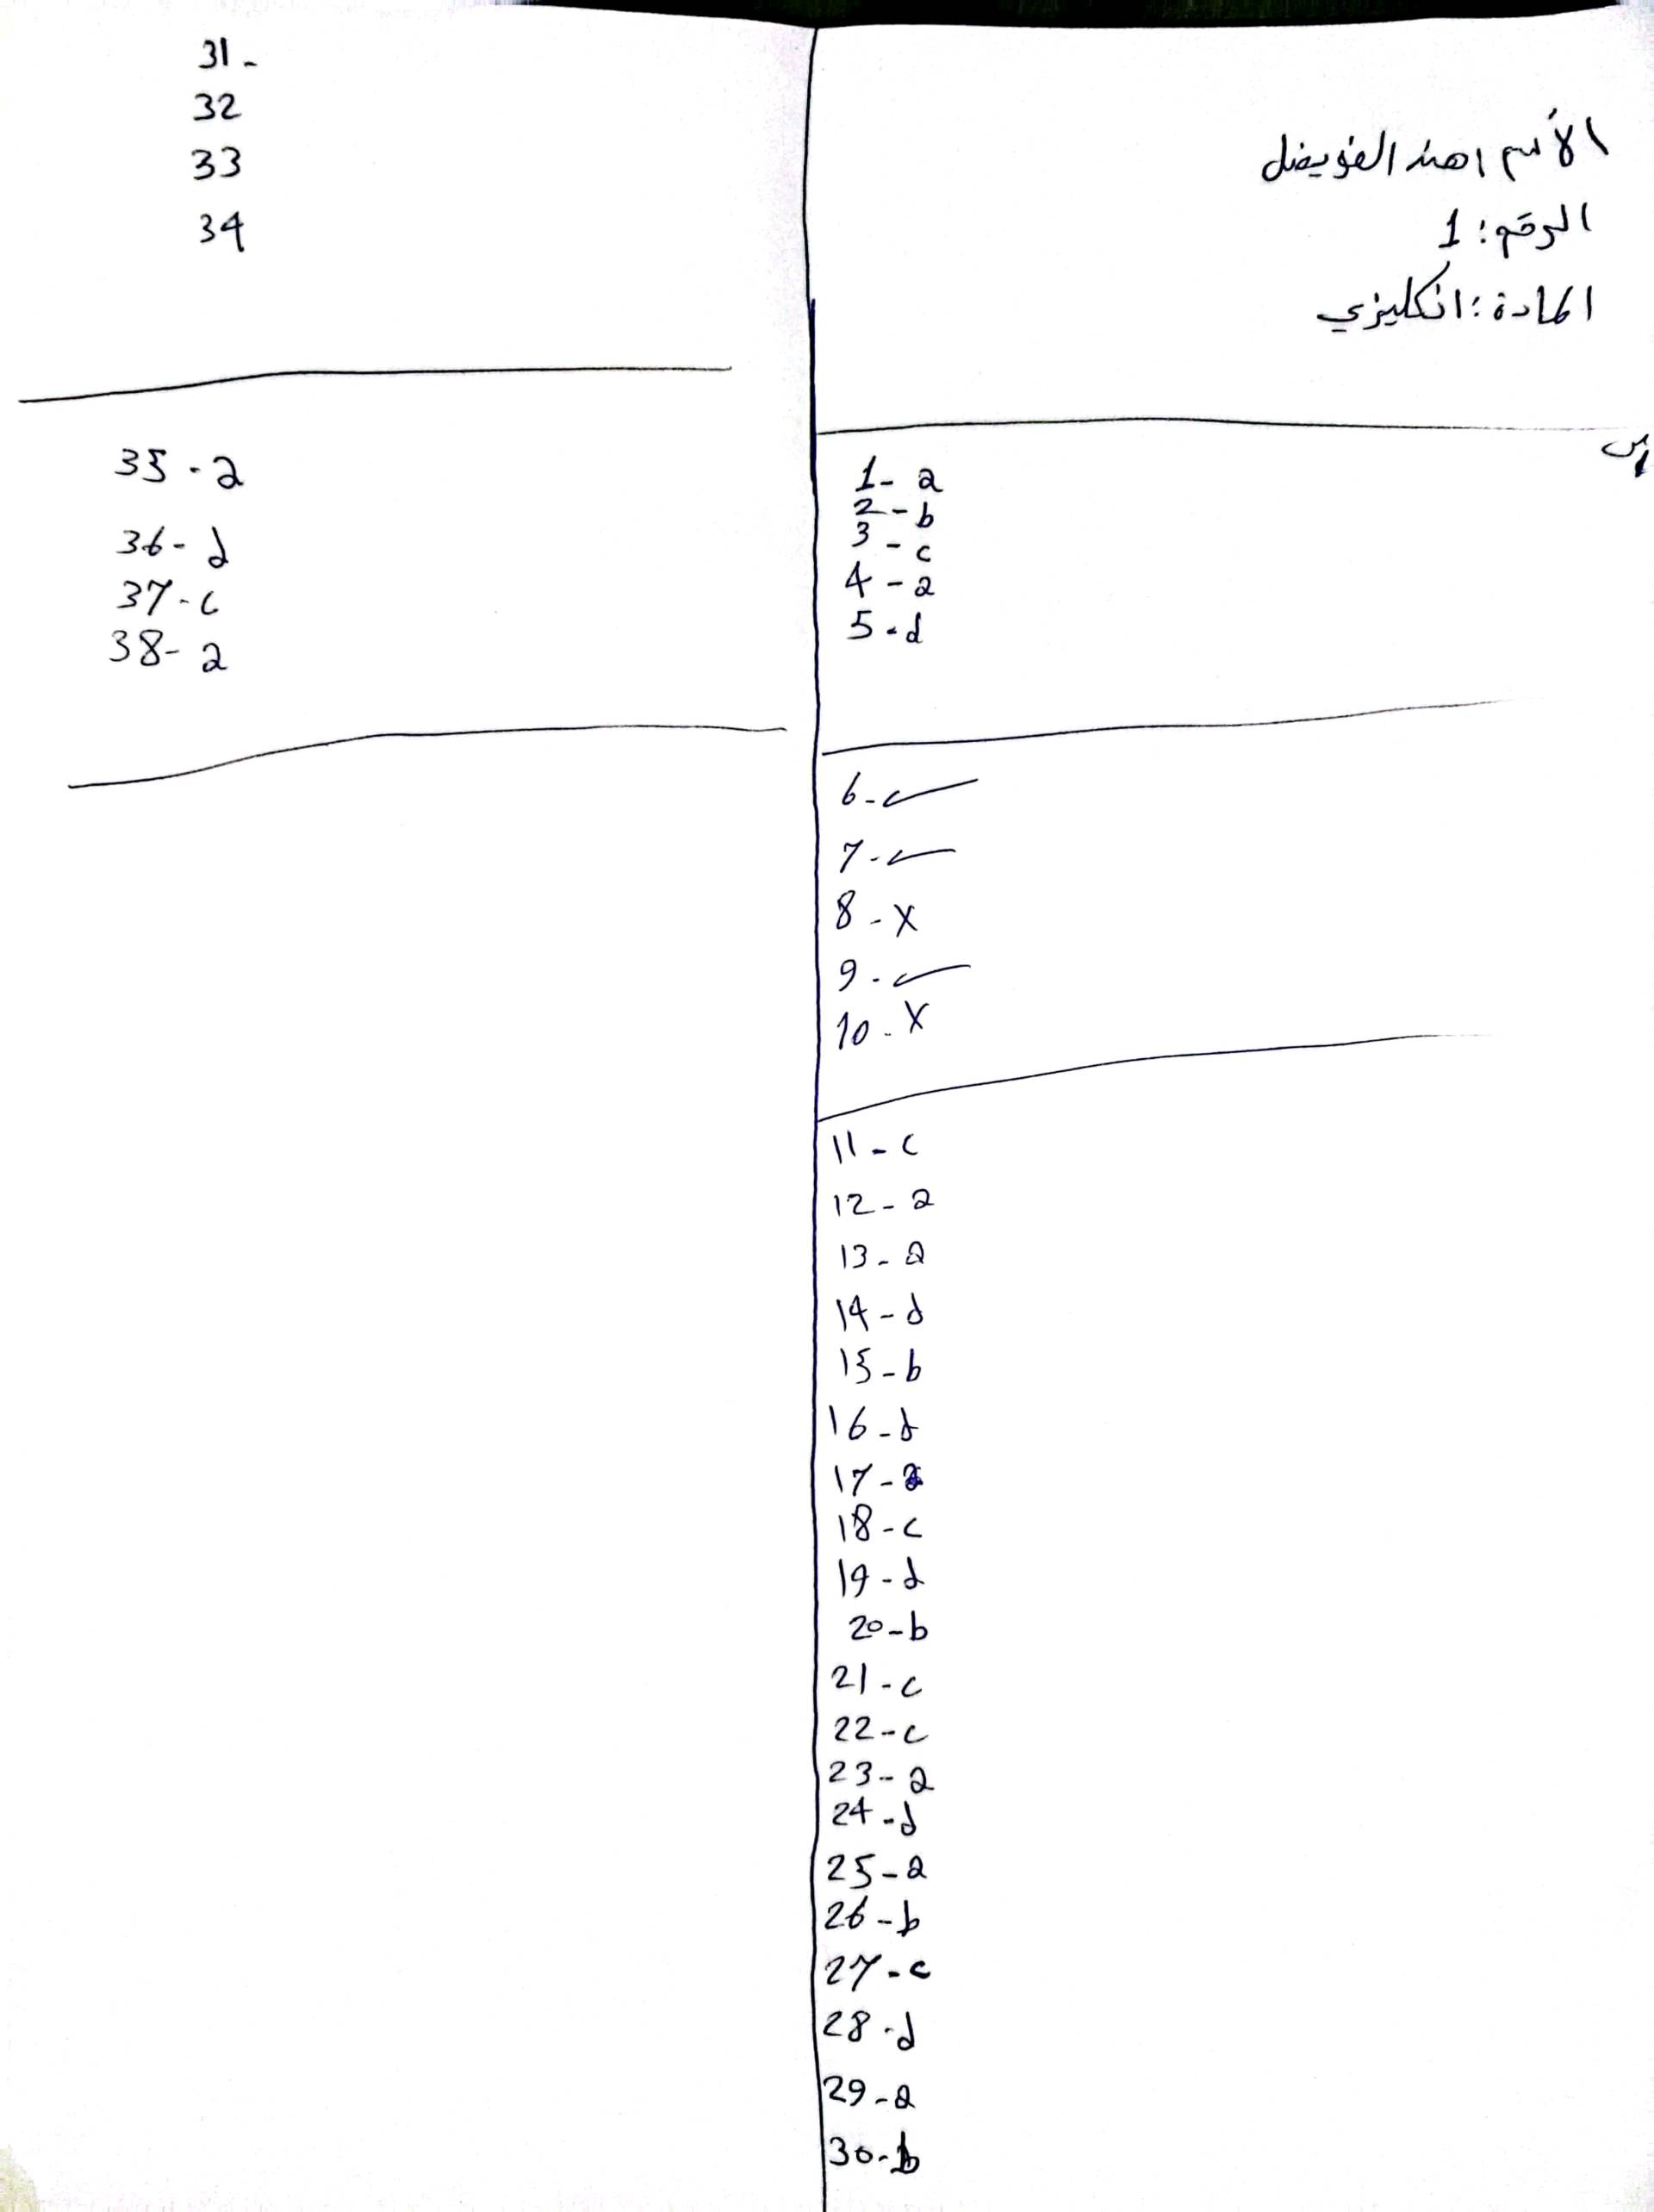 الأسم: هند الفويضل
الرقم: 1
المادة: انكليزي
1- a
2- b
3- c
4- a
5- d
6- ✓
7- ✓
8- X
9- ✓
10- X
11- c
12- a
13- a
14- d
15- b
16- d
17- a
18- c
19- d
20- b
21- c
22- c
23- a
24- d
25- a
26- b
27- c
28- d
29- a
30- b
31-
32
33
34
35- a
36- d
37- c
38- a